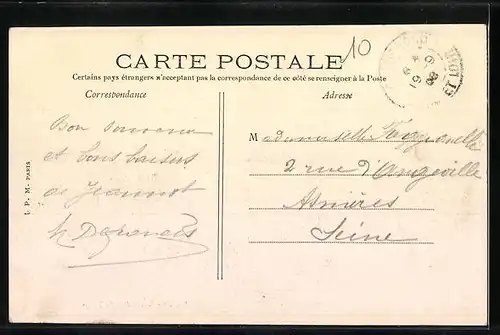 10
CARTE POSTALE
Certains pays étrangers n'acceptant pas la correspondance de ce côté se renseigner à la Poste
Correspondance
Adresse
Bon souvenir
et bons baisers
de Jeannot
Mademoiselle
2 rue d'Angeville
Asnières
Seine
I. P. M. PARIS